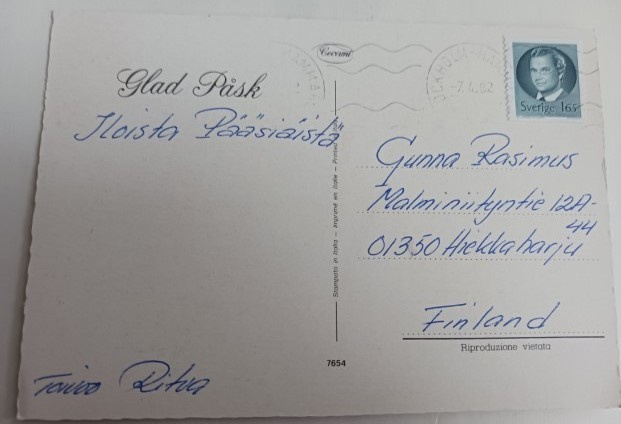 Cecami
Glad Påsk
Iloista Pääsiäistä
Toivoo Ritva
-7.4.82
Sverige 165
Gunna Rasimus
Malminiityntie 12A-
44
01350 Hiekkaharju
Finland
Riproduzione vietata
7654
Stampato in Italia – Imprimé en Italie – Printed